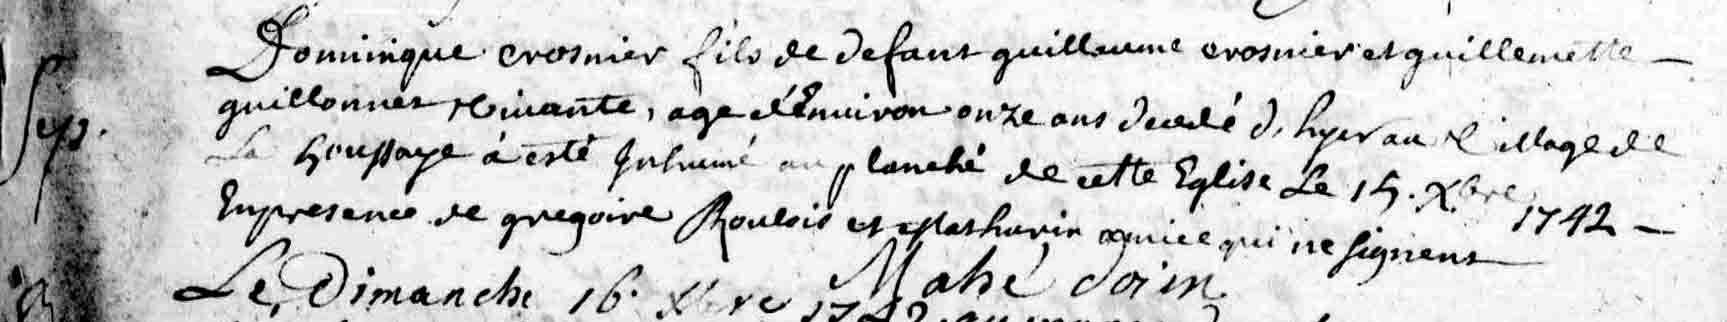 Dominique crosnier fils de defunt guillaume crosnier et guillemette
Sep.
guillonnet vivante, age d'Environ onze ans decedé d'hyer au village de
La houssaye à esté Inhumé au planché de cette Eglise Le 15. Xbre 1742
Enpresence de gregoire Roulois et Mathurin qui ne signent
Mahé Doien
Le Dimanche 16. Xbre 1742